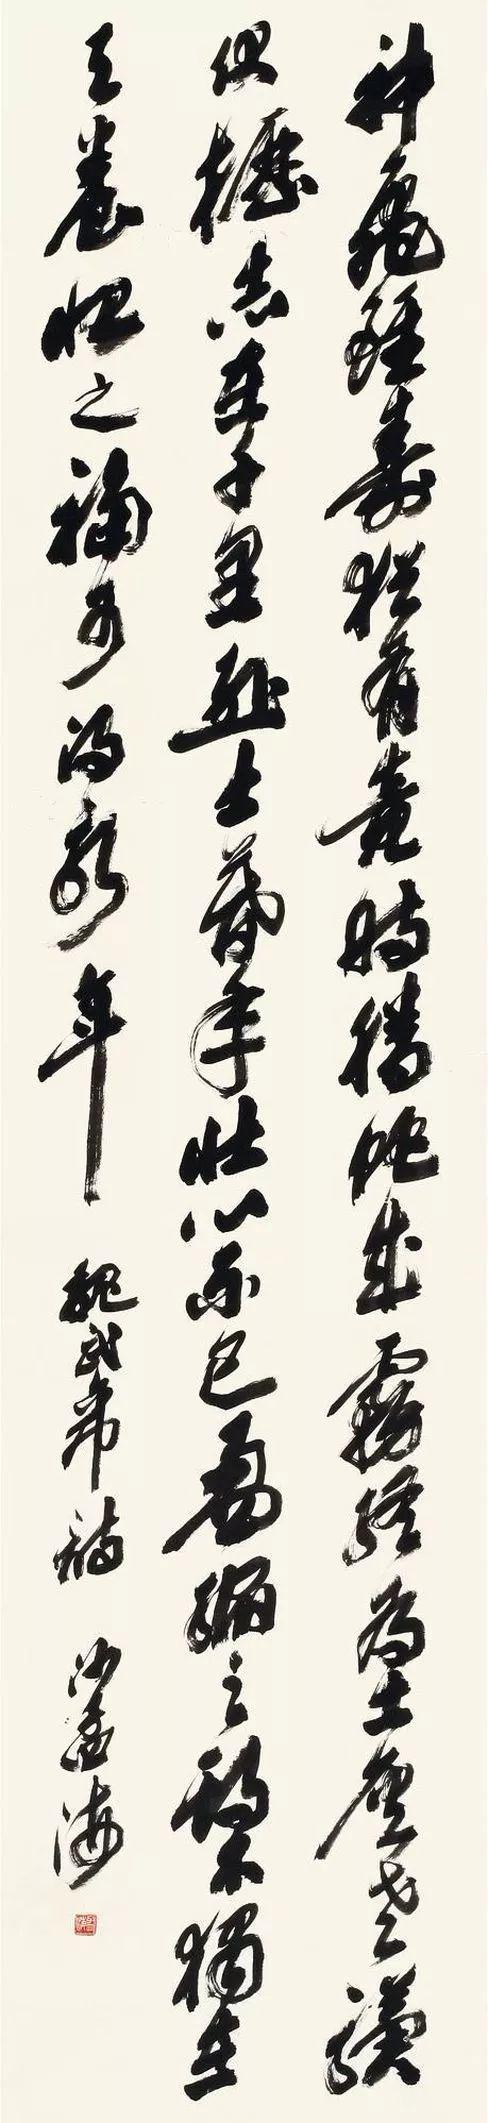 神龜雖壽猶有竟時騰蛇成霧終為土塵老驥
伏櫪志在千里烈士暮年壯心不已盈縮之期不獨在
天養怡之福可得永年 魏武帝詩 沙孟海